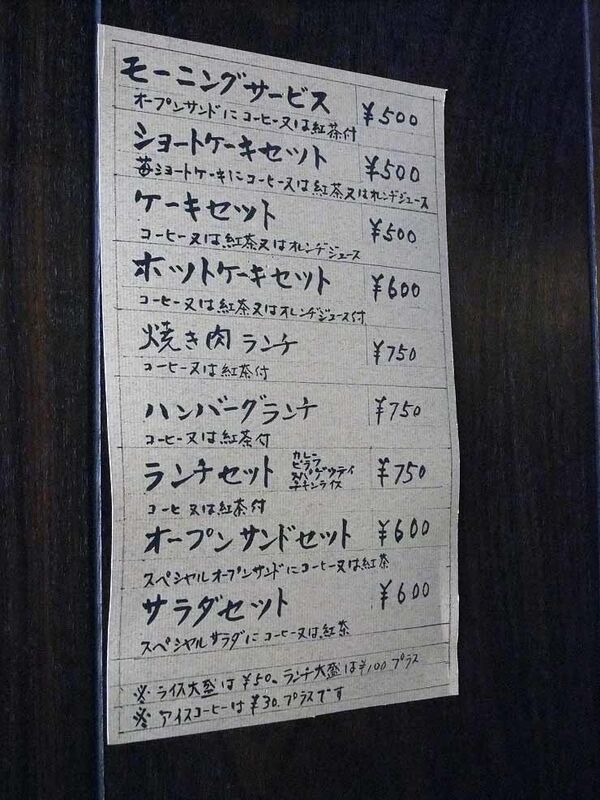 モーニングサービス ¥500
オープンサンドにコーヒー又は紅茶付
ショートケーキセット ¥500
苺ショートケーキにコーヒー又は紅茶又はオレンヂジュース
ケーキセット ¥500
コーヒー又は紅茶又はオレンヂジュース
ホットケーキセット ¥600
コーヒー又は紅茶又はオレンヂジュース付
焼き肉ランチ ¥750
コーヒー又は紅茶付
ハンバーグランチ ¥750
コーヒー又は紅茶付
ランチセット ¥750
カレー
ピラフ
スパゲッティ
チキンライス
コーヒ又は紅茶付
オープンサンドセット ¥600
スペシャルオープンサンドにコーヒー又は紅茶
サラダセット ¥600
スペシャルサラダにコーヒー又は紅茶
※ ライス大盛は¥50、ランチ大盛は¥100プラス
※ アイスコーヒーは¥30.プラスです